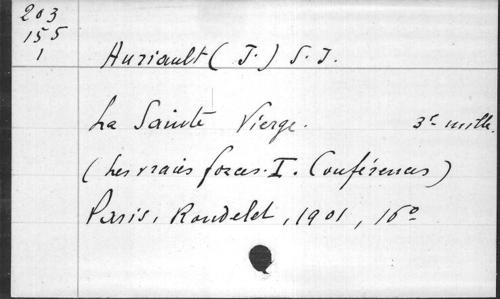 203
155
1
Auriault (J.) S.J.
La Sainte Vierge. 3e mille.
(Les vraies forces. I. Conférences)
Paris, Rondelet, 1901, 16o